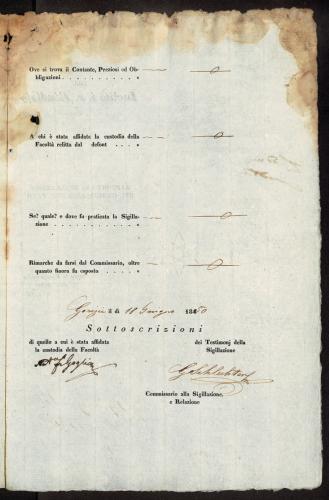 Ove si trova il Contante, Preziosi od Ob-
bligazioni . . . . . . . . . . . — 0 —
A chi è stata affidata la custodia della
Facoltà relitta dal defont . . . . — 0 —
Se? quale? e dove fu praticata la Sigilla-
zione . . . . . . . . . . . . — 0 —
Rimarche da farsi dal Commissario, oltre
quanto finora fu esposto . . . . . — 0 —
di 18 Giugno 1850
Sottoscrizioni
di quello a cui è stata affidata
la custodia della Facoltà
dei Testimonj della
Sigillazione
Commissario alla Sigillazione
e Relazione